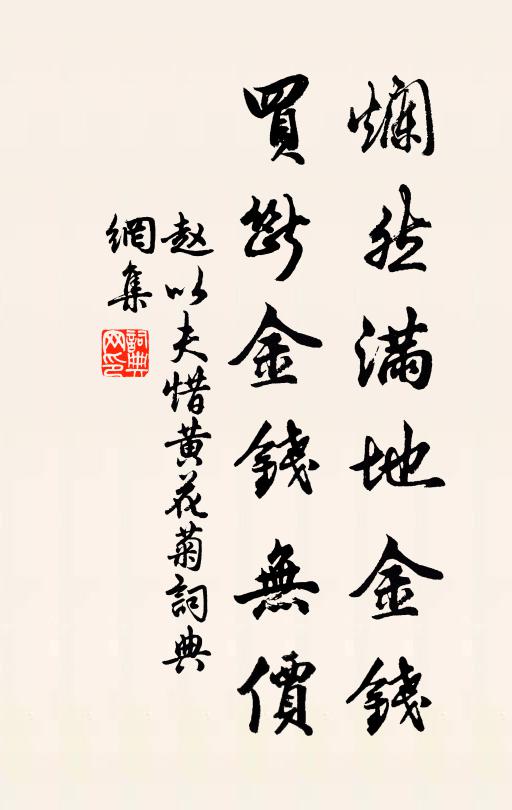 爛然滿地金錢
買斷金錢無價
赵以夫惜黄花菊詞典
網集
詞典
网印